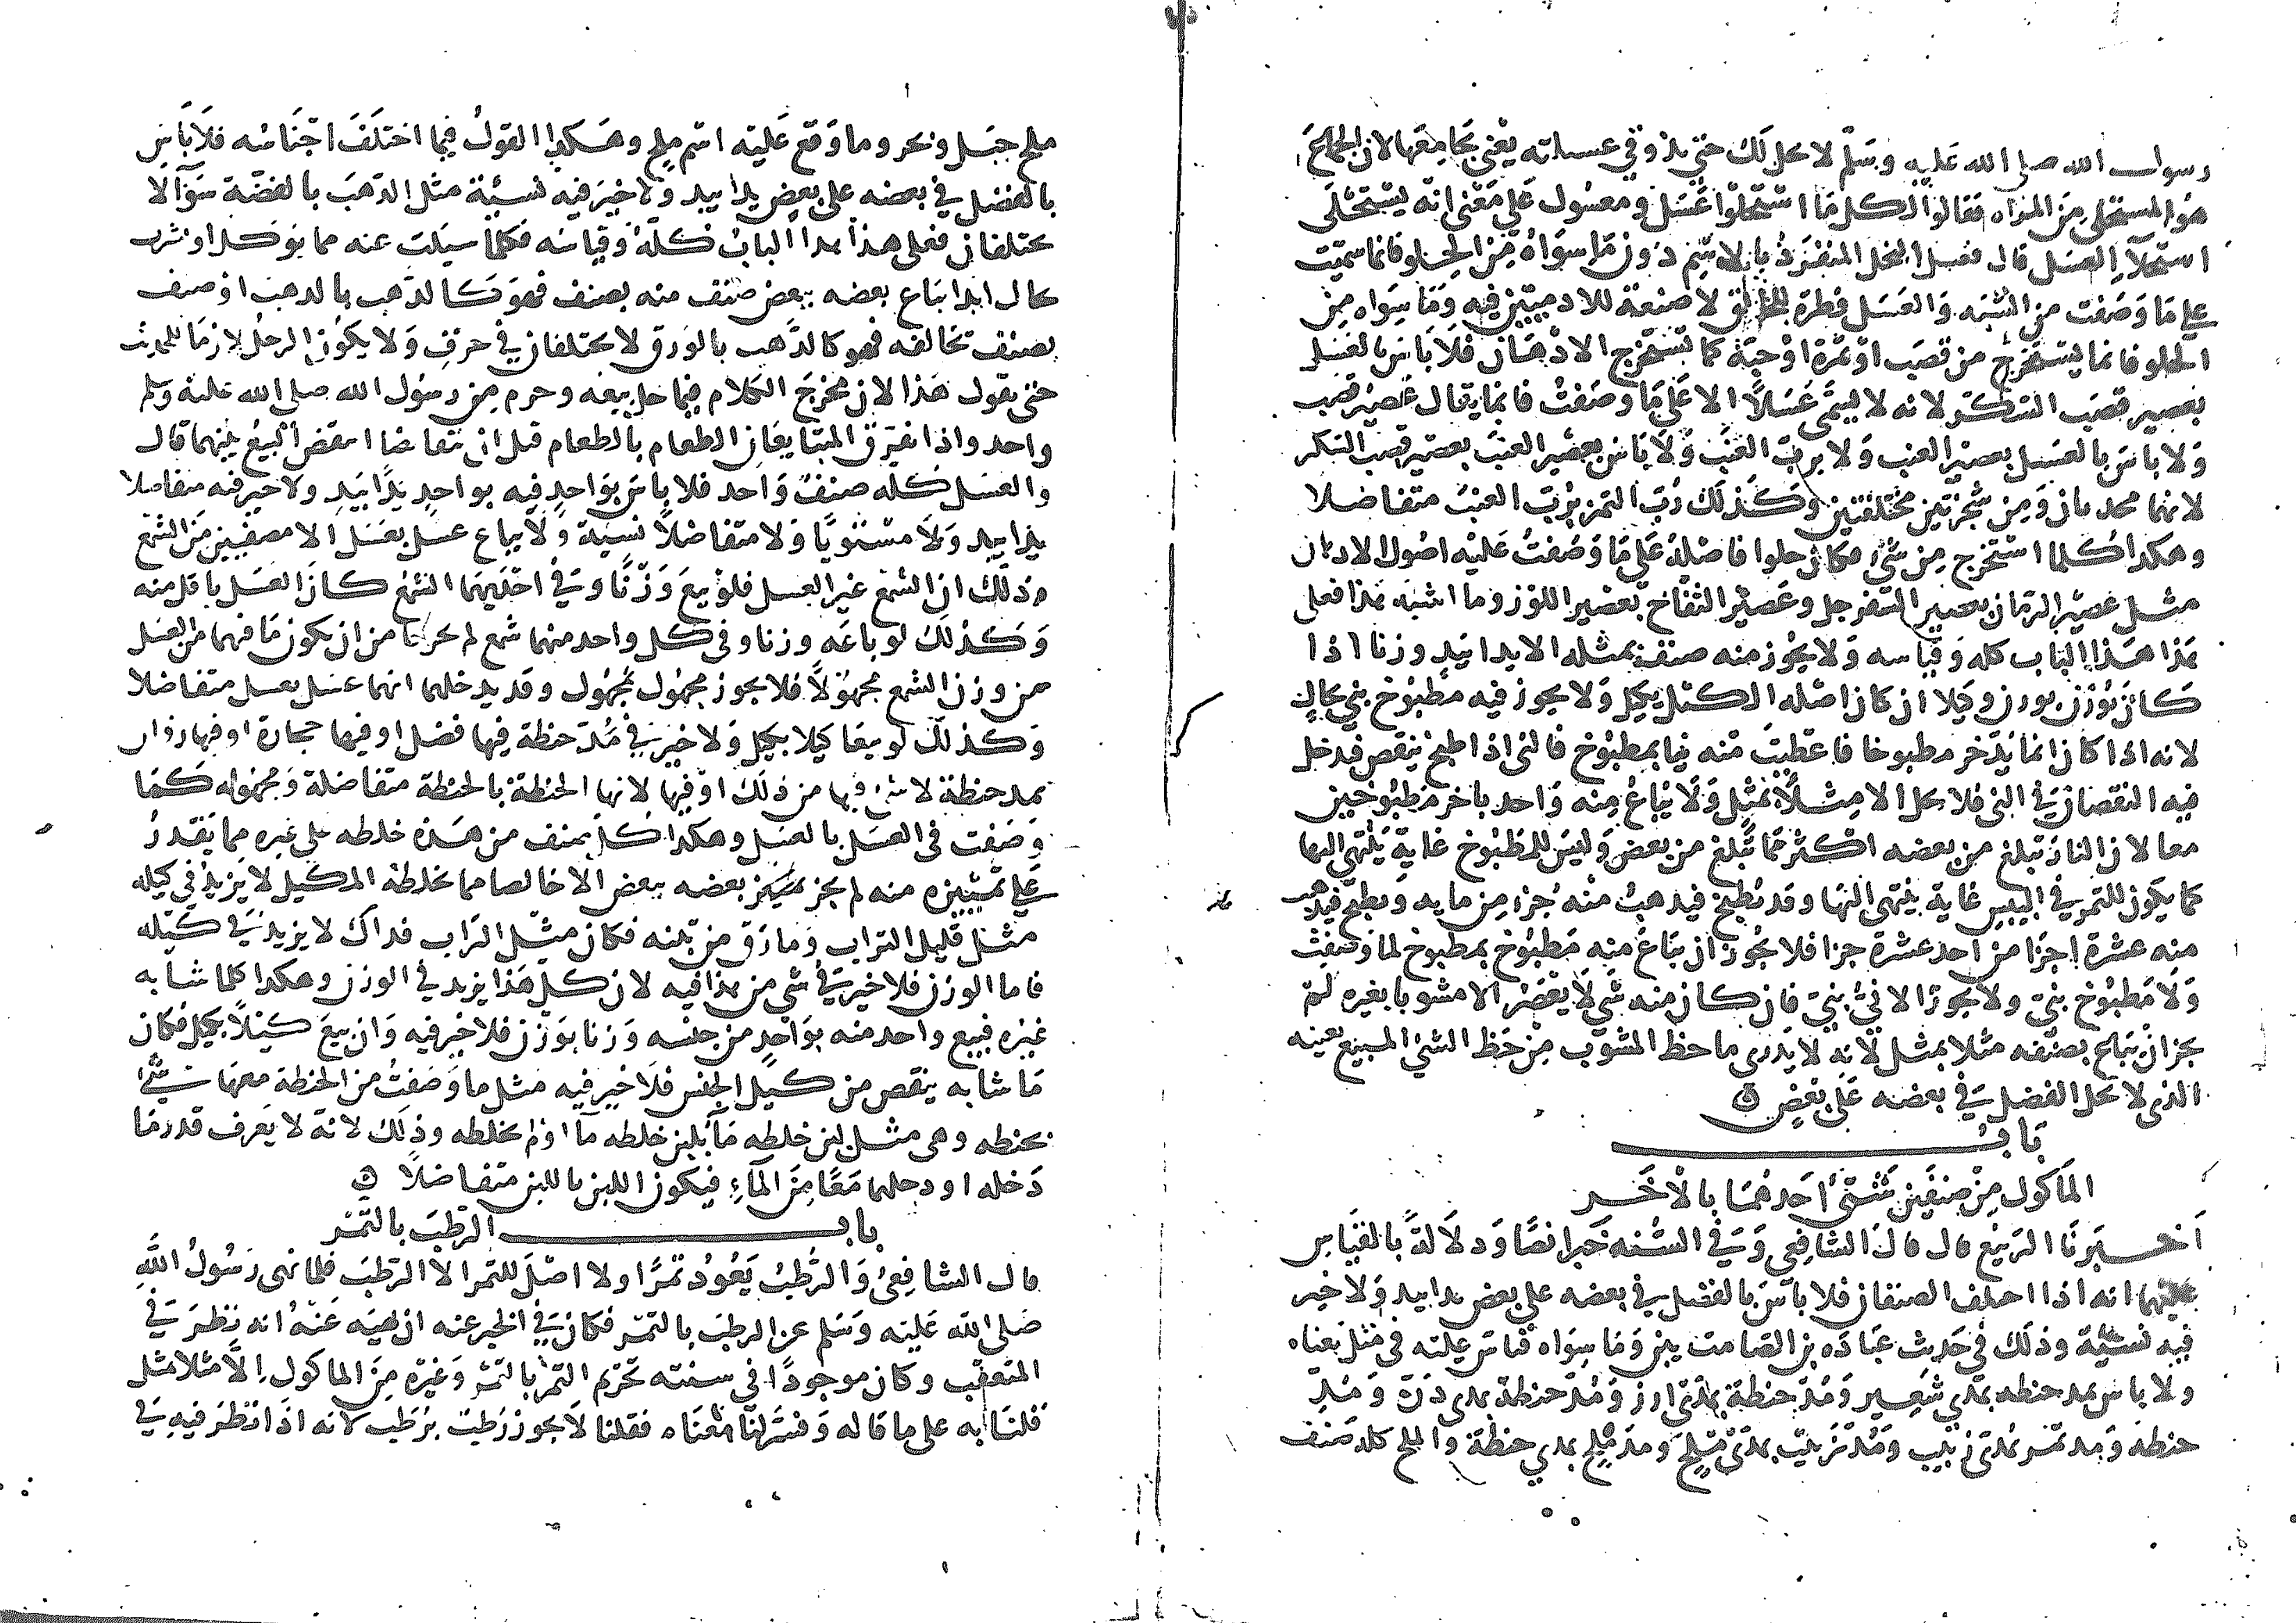 رسول الله صلى الله عليه وسلم لا يحل لك حتى يذوق عسيلته يعني يجامعها لان الجماع
هو المستحلى من المراه فقالوا لكل ما استحلوا عسل ومعسول على معنى انه يستحلى
استحلا العسل قال فعسل النحل المنفرد بالاسم دون ما سواه من الحلو فانما سميت
على ما وصفت من الشبه والعسل فطرة الخالق لا صنعة للادميين فيه وما سواه من
الحلو فانما يستخرج من قصب او ثمرة او حبة كما تستخرج الادهان فلا باس بالعسل
بعصير قصب السكر لانه لا يسمى عسلا الا على ما وصفت فانما يقال عصير قصب
ولا باس بالعسل بعصير العنب ولا برب العنب ولا باس بعصير العنب بعصير قصب السكر
لانهما محدثان ومن شجرتين مختلفتين وكذلك رب التمر برب العنب متفاضلا
وهكذا كلما استخرج من شيء فكان حلوا فاصله على ما وصفت عليه اصول الادهان
مثل عصير الرمان بعصير السفرجل وعصير التفاح بعصير اللوز وما اشبه هذا فعلى
هذا هذا الباب كله وقياسه ولا يجوز منه صنف بمثله الا يدا بيد وزنا اذا
كان يوزن بوزن وكيلا ان كان اصله الكيل بكيل ولا يجوز فيه مطبوخ بني بحال
لانه اذا كان انما يدخر مطبوخا فاعطيت منه نيا بمطبوخ فالني اذا طبخ ينقص فيدخل
فيه النقصان في الني فلا يحل الا مثلا بمثل ولا يباع منه واحد باخر مطبوخين
معا لان النار تبلغ من بعضه اكثر مما تبلغ من بعض وليس للمطبوخ غاية ينتهي اليها
كما يكون للتمر في اليبس غاية ينتهي اليها وقد يطبخ فيذهب منه جزء من مايه ويطبخ فيذهب
منه عشرة اجزا من احد عشرة جزا فلا يجوز ان يباع منه مطبوخ بمطبوخ لما وصفت
ولا مطبوخ بني ولا يجوز الا ني بني فان كان منه شي لا يعصر الا مشوبا بغيره لم
يجز ان يباع بصنفه مثلا بمثل لانه لا يدرى ما حظ المشوب من حظ الشي المبيع بعينه
الذي لا يحل الفضل في بعضه على بعض
باب
الماكول من صنفين شتى احدهما بالاخر
اخبرنا الربيع قال قال الشافعي وفي السنه خبرا نصا ودلالة بالقياس
عليها انه اذا اختلف الصنفان فلا باس بالفضل في بعضه على بعض يدا بيد ولا خير
فيه نسئة وذلك في حديث عباده بن الصامت بين وما سواه قياس عليه في مثل معناه
ولا باس بمد حنطه بمدي شعير ومد حنطة بمدي ارز ومد حنطة بمدي ذرة ومد
حنطة ومد تمر بمدي زبيب ومد زبيب بمدي ملح ومد ملح بمدي حنطة والملح كله صنف
ملح جبل وبحر وما وقع عليه اسم ملح وهكذا القول فيما اختلف اجناسه فلا باس
بالفضل في بعضه على بعض يدا بيد ولا خير فيه نسيئة مثل الذهب بالفضة سوآ لا
يختلفان فعلى هذا هذا الباب كله وقياسه فكلما سيلت عنه مما يوكل او يشرب
بحال ابدا يباع بعضه ببعض صنف منه بصنف فهو كالذهب بالذهب او صنف
بصنف تخالفه فهو كالذهب بالورق لا يختلفان في حرف ولا يكون الرجل لازما للحديث
حتى يقول هذا لان مخرج الكلام فيما حل بيعه وحرم من رسول الله صلى الله عليه وسلم
واحد واذا تفرق المتبايعان الطعام بالطعام قبل ان تقابضا انتقض البيع بينهما قال
والعسل كله صنف واحد فلا باس بواحد فيه بواحد يدا بيد ولا خير فيه متفاضلا
يدا بيد ولا مستويا ولا متفاضلا نسية ولا يباع عسل بعسل الا مصفيين من الشمع
وذلك ان الشمع غير العسل فلو بيع وزنا وفي احديهما الشمع كان العسل باقل منه
وكذلك لو باعه وزنا وفي كل واحد منهما شمع لم يخرجا من ان يكون ما فيهما من العسل
من وزن الشمع مجهولا فلا يجوز مجهول بمجهول وقد يدخلهما انهما عسل بعسل متفاضلا
وكذلك لو بيعا كيلا بكيل ولا خير في مد حنطة فيها فضل او فيها حجارة او فيها زوان
بمد حنطة لا شئ فيها من ذلك او فيها لانها الحنطة بالحنطة متفاضلة ومجهوله كما
وصفت في العسل بالعسل وهكذا كل صنف من هذه خلطه على غيره مما يقدر
على تمييزه منه لم يجز بعضه ببعض الا خالصا مما يخلطه الا المكيل لا يزيد في كيله
مثل قليل التراب وما دق من تبنه فكان مثل التراب فذاك لا يزيد في كيله
فاما الوزن فلا خير في شي من هذا فيه لان كل هذا يزيد في الوزن وهكذا كلما شابه
غيره فبيع واحد منه بواحد من جنسه وزنا بوزن فلا خير فيه وان بيع كيلا بكيل فكان
ما شابه ينقص من كيل الجنس فلا خير فيه مثل ما وصفت من الحنطة معها شيئ
بحنطه وهي مثل لبن خلطه مآ بلبن خلطه مآ او لم يخلطه وذلك لانه لا يعرف قدر ما
دخله او دخلهما معا من المآء فيكون اللبن باللبن متفاضلا
باب الرطب بالتمر
قال الشافعي والرطب يعود تمرا ولا اصل للتمر الا الرطب فلما نهى رسول الله
صلى الله عليه وسلم عن الرطب بالتمر فكان في الخبر عنه ان نهيه عنه انه نظر في
المتعقب وكان موجودا في سنته تحريم التمر بالتمر وغيره من الماكول الا مثلا مثل
قلنا به على ما قاله وفسر لنا معناه فقلنا لا يجوز رطب برطب لانه اذا نظر فيه في